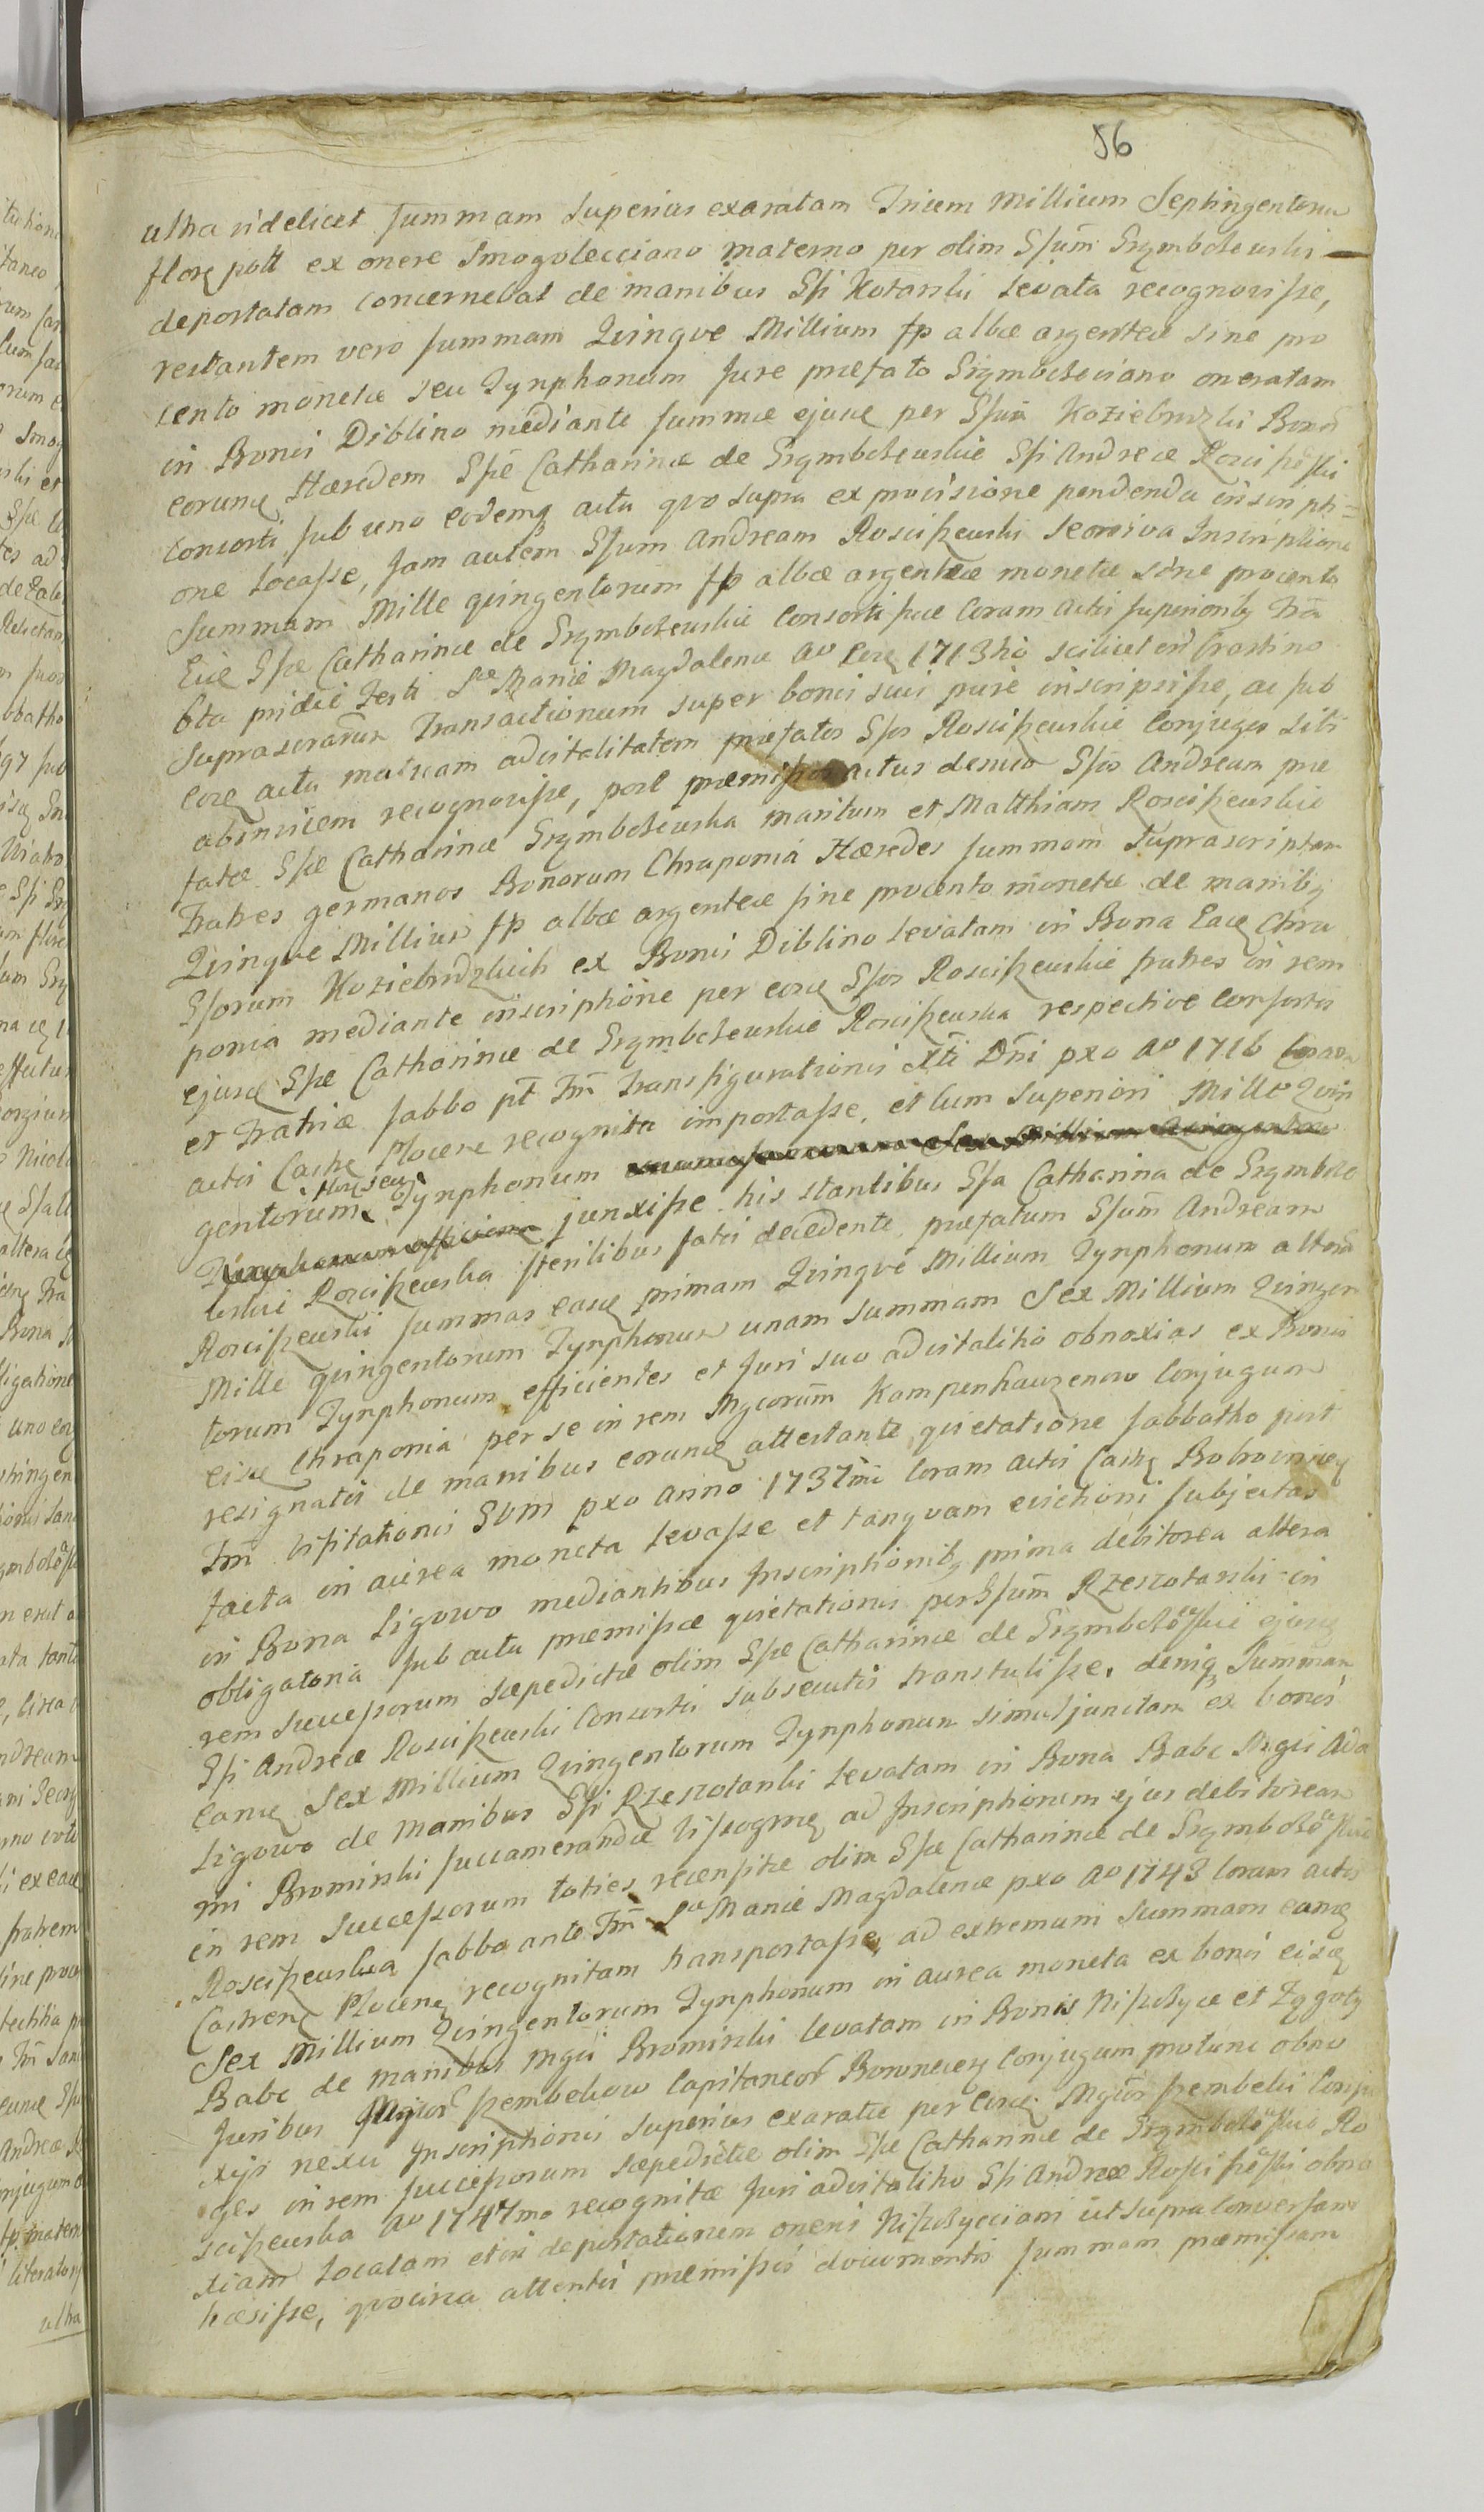 56
ultra videlicet summam superius exaratam Trium Millium Septingentorum
flor poll ex onere Smogolecciano materno per olim Gsum Grzymbczewski
deportatam concernebat de manibus Gsi Kotarski levata recognovisse,
restantem vero summam Qvinqve Millium fp albæ argenteæ sine pro
cento monetæ seu Tynphonum Jure præfato Grzymbczeviano oneratam
in Bonis Diblino mediante summæ ejusq per Gsum Koziebrodzki Bonor
eorumq Hæredem Gsæ Catharinæ de Grzymbczewskie Gsi Andreæ Rosciszewski
consorti sub uno eodemq actu qvo supra ex provisione pendenda inscripti=
one locasse, Jam autem Gsum Andream Rosciszewski seorsiva Inscriptione
Summam Mille qvingentorum fp albæ argenteæ monetæ sine procento
Eiq Gsæ Catharinæ de Grzymbczewskie Consorti suæ Coram Actis superioribq Fra
bta pridie Festi Stæ Mariæ Magdalenæ Ao Eorq 1713tio scilicet in Crastino
suprascrarum Transactionum super bonis suis pure inscripsisse, ac sub
eorq actu mutuam advitalitatem præfatos Gsos Rosciszewskie Conjuges sibi
abinvicem recognovisse, post præmissos actus denuo Gsos Andream præ
fatæ Gsæ Catharinæ Grzymbczewska maritum et Matthiam Rosciszewskie
Fratres germanos Bonorum Chraponia Hæredes summam suprascriptam
Qvinqve Millium fp albæ argenteæ sine procento monetæ de manibq
Gsorum Koziebrodzkich ex Bonis Diblino levatam in Bona Eaq Chra
ponia mediante inscriptione per eosq Gsos Rosciszewskie fratres in rem
ejusq Gsæ Catharinæ de Grzymbczewskie Rosciszewska respective Consortis
et Fratriæ sabbo pt Fm Transfigurationis Xti Dni pxo Ao 1716 Coram
actis Castr Plocen recognita importasse, et cum superiori Mille Qvin
gentorum flor seu Tynphonum
junxisse. his stantibus Gsa Catharina de Grzymbcze
wskie Rosciszewska sterilibus fatis decedente, præfatum Gsum Andream
Rosciszewski summas easq primam Qvinqve Millium Tynphonum alteram
Mille qvingentorum Tynphonum unam summam Sex Millium Qvingen
torum Tynphonum efficientes et Juri suo advitalitio obnoxias ex Bonis
eisq Chraponia per se in rem Mgcorum Kampenhauzenow Conjugum
resignatis de manibus eorumq attestante qvietatione sabbatho post
Fm Visitationis BVM pxo Anno 1737mi Coram Actis Castr Bobrownicq
facta in aurea moneta levasse et tanqvam evictioni subjectas
in Bona Ligowo mediantibus Inscriptionibq prima debitorea altera
obligatoria sub actu præmissæ qvietationis per Gsum Rzeszotarski in
rem successorum sæpedictæ olim Gsæ Catharinæ de Grzymbczewskie ejusq
Gsi Andreæ Rosciszewski Consortis subsecutis transtulisse, deniq summam
eamq Sex Millium Qvingentorum Tynphonum simul junctam ex bonis
Ligowo de Manibus Gsi Rzeszotarski levatam in Bona Babc Mgci Ada
mi Brominski succamerandæ Vissognæ ad Inscriptionem ejus debitoream
in rem successorum toties recensitæ olim Gsæ Catharinæ de Grzymbczewskie
Rosciszewska sabbo ante Fm Stæ Mariæ Magdalenæ pxo Ao 1743 Coram actis
Castren Plocenq recognitam transportasse, ad extremum summam eamq
Sex Millium Qvingentorum Tynphonum in aurea moneta ex bonis eisq
Babc de manibus Mgci Brominski levatam in Bonis Niszczyce et Zągoty
Juribus Mgcor Szembekow Capitaneor Conjugum protunc obno
xijs nexu Inscriptionis superius exaratæ per eosq Mgcos Szembeki Conju
ges in rem successorum sæpedictæ olim Gsæ Catharinæ de Grzymbczewskie Ro
sciszewska Ao 1747mo recognitæ Juri advitalitio Gsi Andreæ Rosciszewski obno
xiam locatam et in deportationem oneris Niszczycciani ut supra conversam
hæsisse, qvocirca attentis præmissis documentis summam præmissam